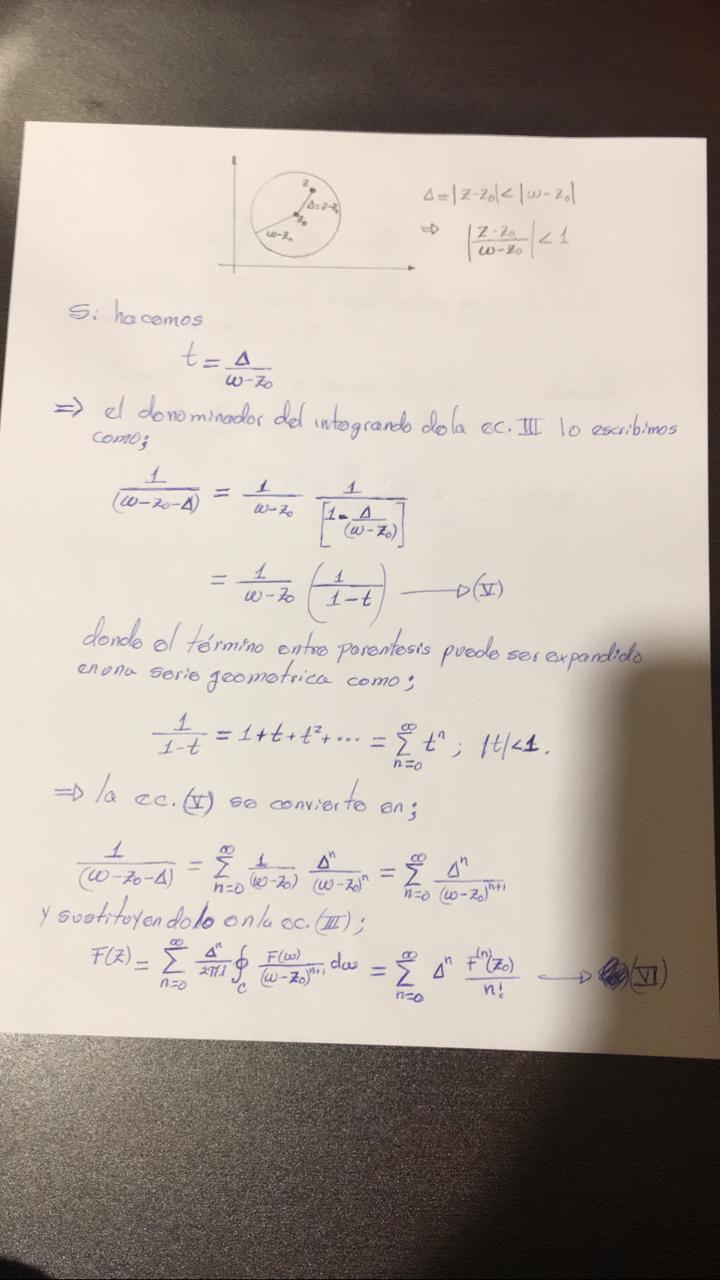 z
Δ=z-z₀
z₀
ω-z₀
Δ=|z-z₀|<|ω-z₀|
⇒ |(z-z₀)/(ω-z₀)|<1
Si hacemos
t = Δ/(ω-z₀)
⇒ el denominador del integrando de la ec. III lo escribimos
como;
1/(ω-z₀-Δ) = 1/(ω-z₀) 1/[1-Δ/(ω-z₀)]
= 1/(ω-z₀) (1/(1-t)) ⟶ (V)
donde el término entre parentesis puede ser expandido
en una serie geometrica como;
1/(1-t) = 1+t+t²+... = ∑_{n=0}^{∞} tⁿ ; |t|<1.
⇒ la ec. (V) se convierte en;
1/(ω-z₀-Δ) = ∑_{n=0}^{∞} 1/(ω-z₀) Δⁿ/(ω-z₀)ⁿ = ∑_{n=0}^{∞} Δⁿ/(ω-z₀)ⁿ⁺¹
y sustituyendolo en la ec. (III);
F(z) = ∑_{n=0}^{∞} Δⁿ/2πi ∮_C F(ω)/(ω-z₀)ⁿ⁺¹ dω = ∑_{n=0}^{∞} Δⁿ F⁽ⁿ⁾(z₀)/n! ⟶ (VI)